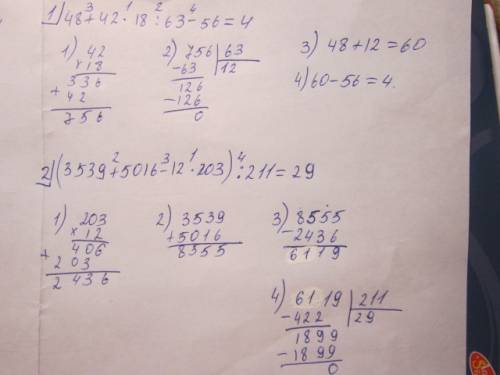 3 1 2 4
1) 48+42·18:63-56=4
1) 42
×18
336
+
42
756
2) 756 | 63
-63 | 12
126
-126
0
3) 48+12=60
4) 60-56=4.
2 3 1 4
2) (3539+5016-12·203):211=29
1) 203
×12
406
+
203
2436
2) 3539
+5016
8555
3) 8555
-2436
6119
4) 6119 | 211
-422 | 29
1899
-1899
0